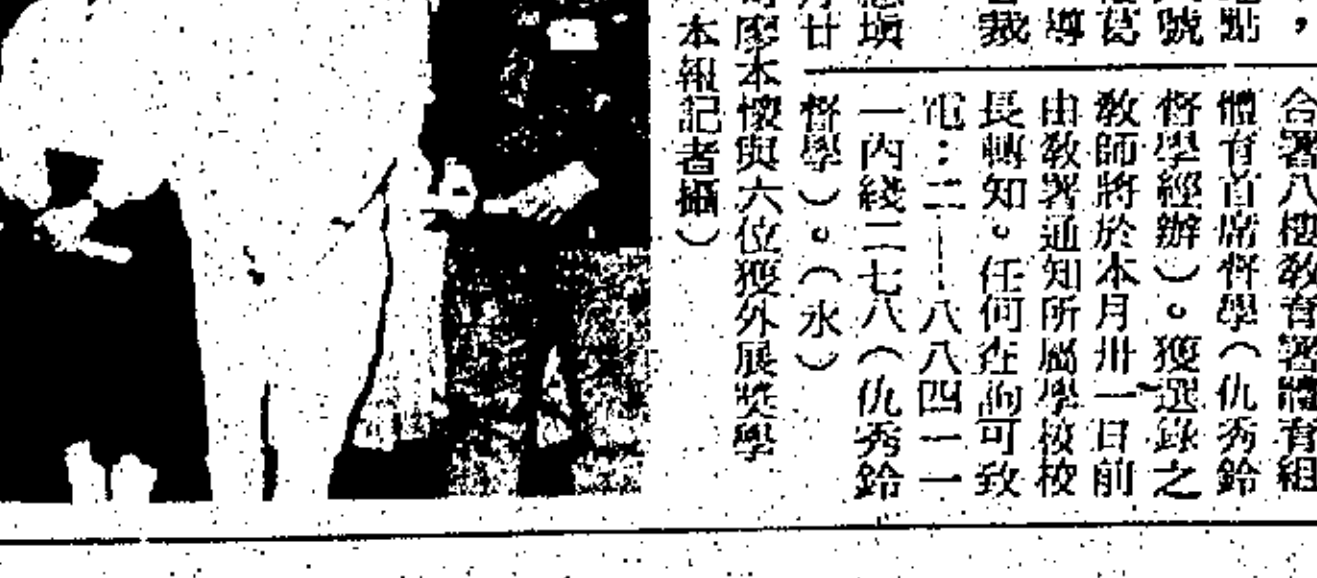 ，
點
號
葛
導
裁
填
廿
合署八樓敎育署體育組
體育首席督學（仇秀鈴
督學經辦）。獲選錄之
敎師將於本月卅一日前
由敎署通知所屬學校校
長轉知。任何查詢可致
電：二—八八四一一
一內綫二七八（仇秀鈴
督學）。（永）
本懷與六位獲外展獎學
本報記者攝）